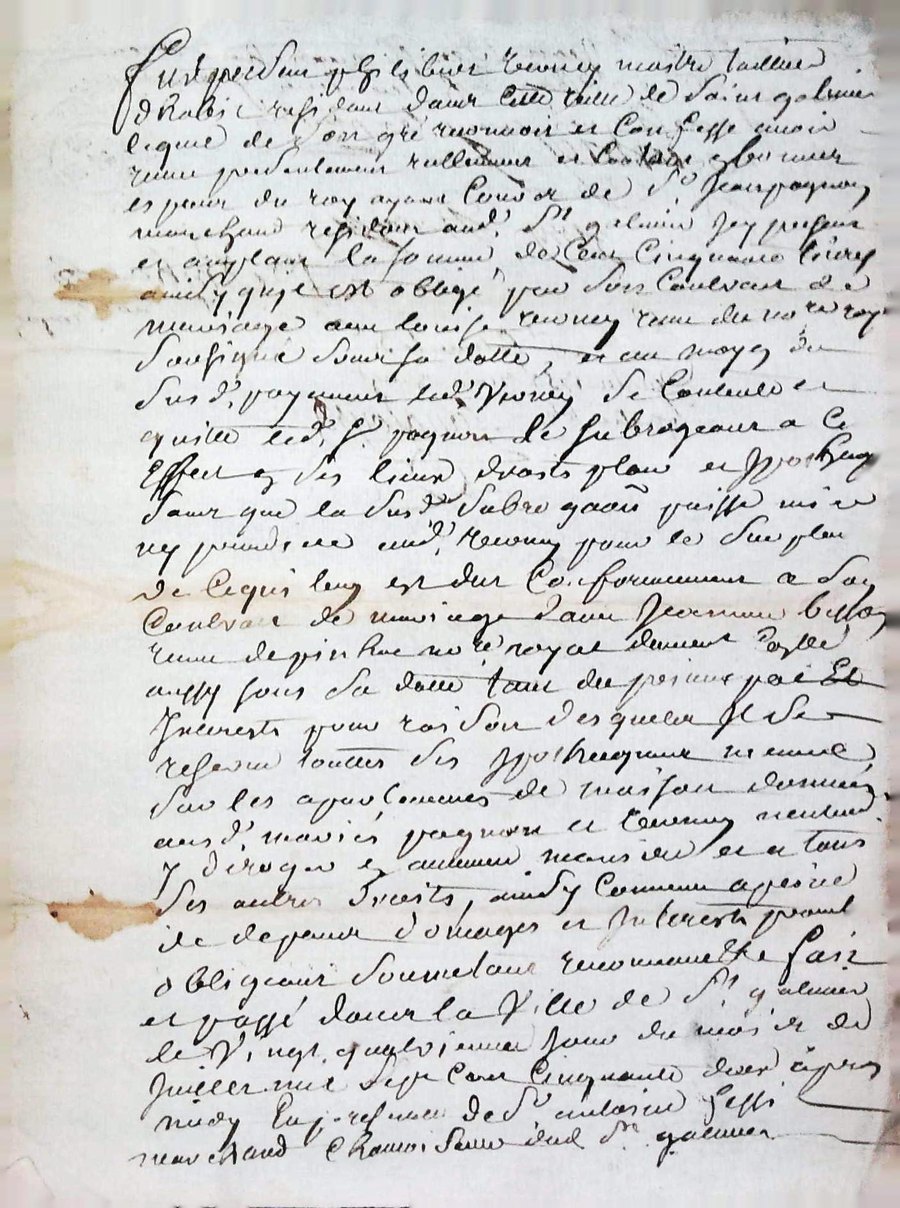 fut present philibert verney maitre tailleur
d'habit residant dans cette ville de saint galmier
lequel de son gré reconnoit et confesse avoir
receu presentement reellement et content en bonnes
especes du roy ayans cours de Sr Jean pagnon
marchand residant aud. St galmier icy present
et acceptant la somme de Cent Cinquante livres
ainsy quil est obligé par son Contract de
mariage avec louise verney receu du no.re royal
soussigné sous sa datte, et au moyen du
susd. payement led. Verney se Contente et
quitte led. Sr pagnon le subrogeant a Ce
Effect en ses lieux droits place et ypotheque
sans que la susd. subrogaõn puisse nuire
ny prejudicier aud. verney pour le surplus
de Ce qui luy est dut Conformement a son
Contract de mariage d'avec Jeanne
receu de no.re royal
aussy sous sa datte tant du principal Et
Interests pour raison desquels Il se
reserve touttes ses ypotheques mesme
sur les apartements de maison donnés
ausd. mariés pagnon et verney n'entend
y deroger en aucune maniere et a tous
ses autres droits, ainsy Convenu a peine
de depens domages et Interests
obligeant soumetant renonceant &c fait
et passé dans la Ville de St galmier
le Vingt quatrieme jour du mois de
Juillet mil sept Cent Cinquante deux apres
midy En presence de Sr antoine
marchand Chamoiseur dud. St galmier